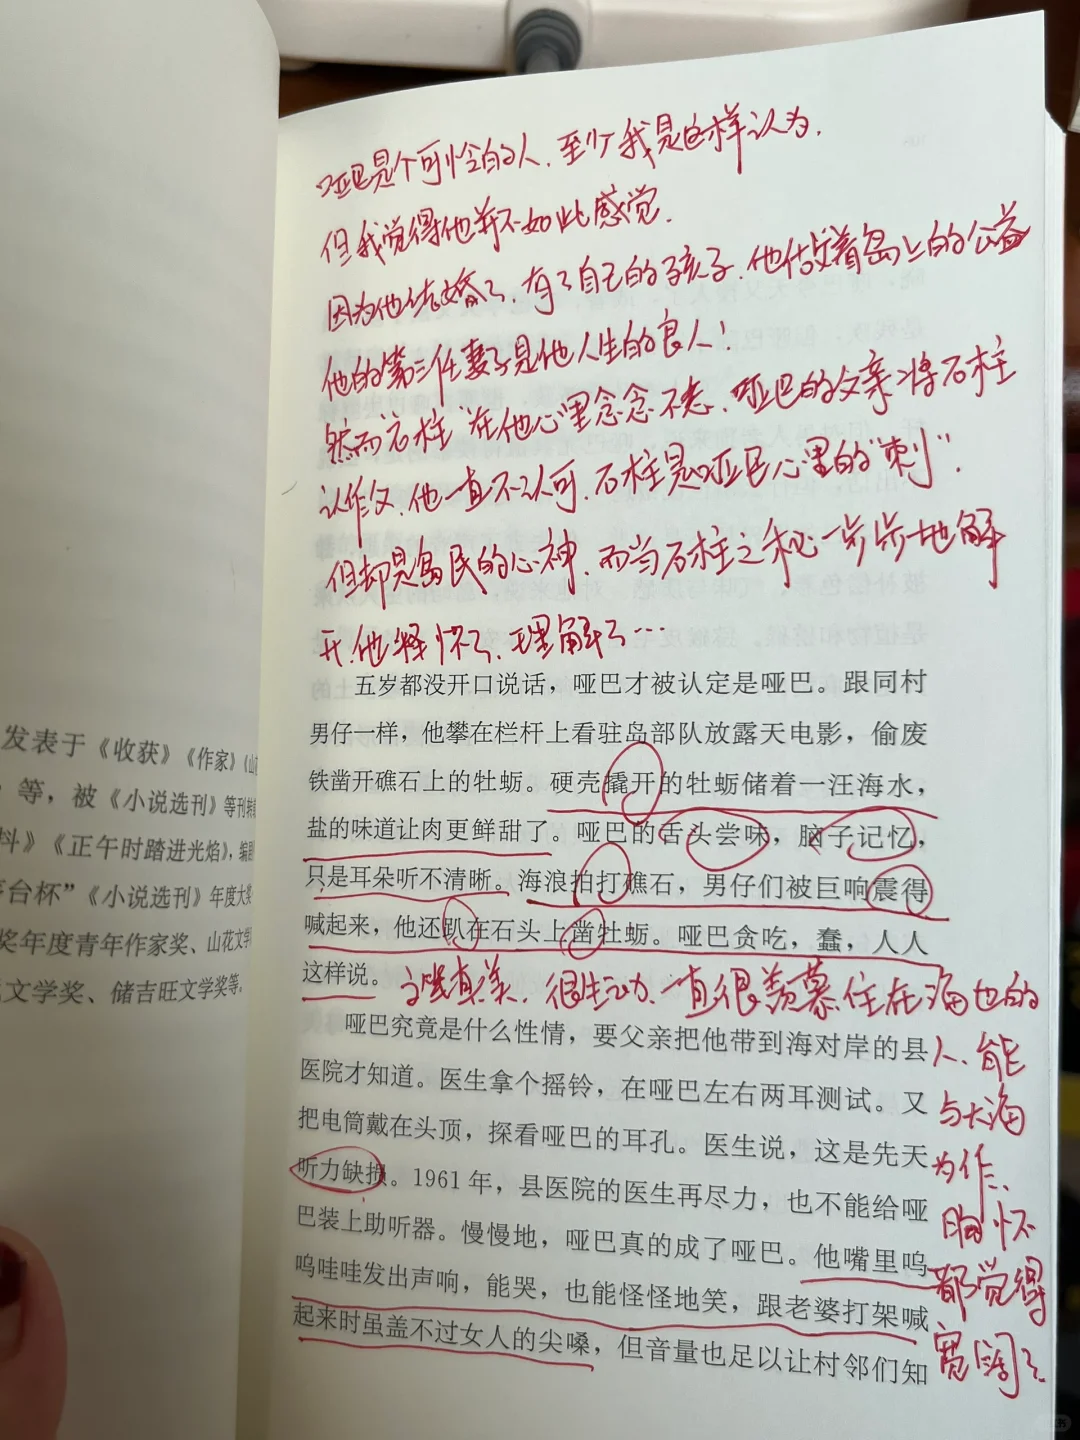 发表于《收获》《作家》《山花
等，被《小说选刊》等刊转
抖》《正午时踏进光焰》，编剧
台杯”《小说选刊》年度大奖
奖年度青年作家奖、山花文学
文学奖、储吉旺文学奖等。
哑巴是个可怜的人，至少我是这样认为，
但我觉得他并不如此感觉，
因为他结婚了，有了自己的孩子，他做着岛上的公益
他的第三任妻子是他人生的良人！
然而“石柱”在他心里念念不忘，哑巴的父亲将石柱
认作父，他一直不认可，石柱是哑巴心里的“刺”，
但却是岛民的心神，而当石柱之秘一步步地解
开，他释怀了，理解了…
五岁都没开口说话，哑巴才被认定是哑巴。跟同村
男仔一样，他攀在栏杆上看驻岛部队放露天电影，偷废
铁凿开礁石上的牡蛎。硬壳撬开的牡蛎储着一汪海水，
盐的味道让肉更鲜甜了。哑巴的舌头尝味，脑子记忆，
只是耳朵听不清晰。海浪拍打礁石，男仔们被巨响震得
喊起来，他还趴在石头上凿牡蛎。哑巴贪吃，蠢，人人
这样说。
文笔真美，很生动，一直很羡慕住在海边的
人，能
与大海
为伴，
胸怀
都觉得
宽阔了。
哑巴究竟是什么性情，要父亲把他带到海对岸的县
医院才知道。医生拿个摇铃，在哑巴左右两耳测试。又
把电筒戴在头顶，探看哑巴的耳孔。医生说，这是先天
听力缺损。1961年，县医院的医生再尽力，也不能给哑
巴装上助听器。慢慢地，哑巴真的成了哑巴。他嘴里呜
呜哇哇发出声响，能哭，也能怪怪地笑，跟老婆打架喊
起来时虽盖不过女人的尖嗓，但音量也足以让村邻们知